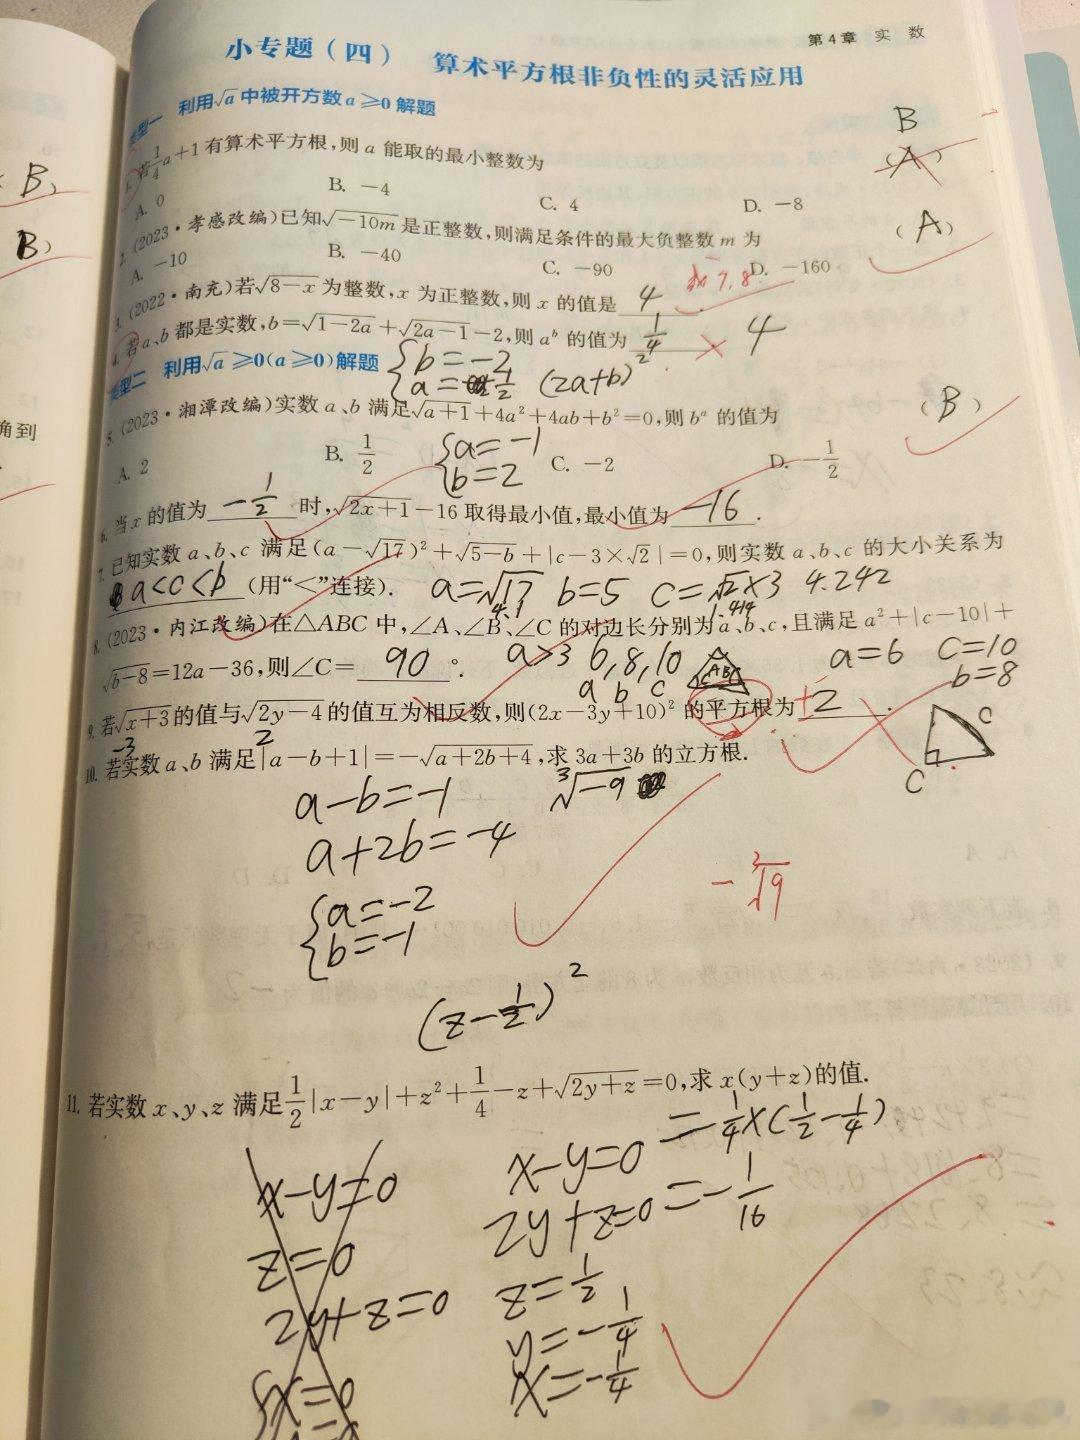 第4章 实 数
小专题（四） 算术平方根非负性的灵活应用
类型一 利用√a中被开方数a≥0解题
B
1. 若1/4a+1有算术平方根,则a能取的最小整数为 (A)
A. 0 B. －4 C. 4 D. －8
2. (2023·孝感改编)已知√－10m是正整数,则满足条件的最大负整数m为 (A)
A. －10 B. －40 C. －90 D. －160
3. (2022·南充)若√8－x为整数,x为正整数,则x的值是 4 或7,8
4. 若a、b都是实数,b=√1－2a+√2a－1－2,则a^b的值为 1/4 4
{b=-2
a=1/2 (2a+b)²
类型二 利用√a≥0(a≥0)解题
5. (2023·湘潭改编)实数a、b满足√a+1+4a²+4ab+b²=0,则b^a的值为 (B)
{a=-1
b=2
A. 2 B. 1/2 C. －2 D. －1/2
6. 当x的值为 -1/2 时,√2x+1－16取得最小值,最小值为 -16 .
7. 已知实数a、b、c满足(a－√17)²+√5－b+|c－3×√2|=0,则实数a、b、c的大小关系为
a<c<b (用“<”连接). a=√17 b=5 c=√2×3 4.242
4.1 1.414
8. (2023·内江改编)在△ABC中,∠A、∠B、∠C的对边长分别为a、b、c,且满足a²+|c－10|+
√b－8=12a－36,则∠C= 90 °. a>3 6,8,10 ABC a=6 c=10
a b c b=8
9. 若√x+3的值与√2y－4的值互为相反数,则(2x－3y+10)²的平方根为 ±2 .
-3 2
c
C
10. 若实数a、b满足|a－b+1|=－√a+2b+4,求3a+3b的立方根.
a-b=-1 ³√-9
a+2b=-4
-³√9
{a=-2
b=-1
(z-1/2)²
11. 若实数x、y、z满足1/2|x－y|+z²+1/4－z+√2y+z=0,求x(y+z)的值.
x-y=0 x-y=0 =-1/4×(1/2-1/4)
z=0 2y+z=0 =-1/16
2y+z=0 z=1/2
y=-1/4
{x=0 x=-1/4
B)
B)
角到